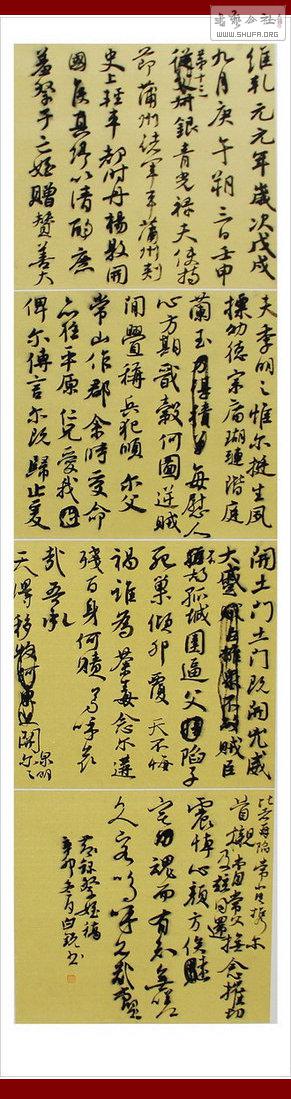 书艺公社
WWW.SHUFA.ORG
维乾元元年岁次戊戌
九月庚午朔三日壬申
第十三
从父银青光禄夫使持
节蒲州诸军事蒲州刺
史上轻车都尉丹杨县开
国侯真卿以清酌庶
羞祭于亡侄赠赞善大
夫季明之惟尔挺生夙
标幼德宗庙瑚琏阶庭
兰玉每慰人
心方期戬谷何图逆贼
间衅称兵犯顺尔父
常山作郡余时受命
亦在平原仁兄爱我
俾尔传言尔既归止爰
开土门土门既开凶威
大蹙贼臣
孤城围逼父陷子
死巢倾卵覆天不悔
祸谁为荼毒念尔遘
残百身何赎呜呼哀
哉吾承
天泽移牧河关
泉明
比者再陷常山携尔
首榇及并同还抚念摧切
震悼心颜方俟
宅幼魂而有知无嗟
久客呜呼哀哉尚飨
节录祭侄稿
辛卯